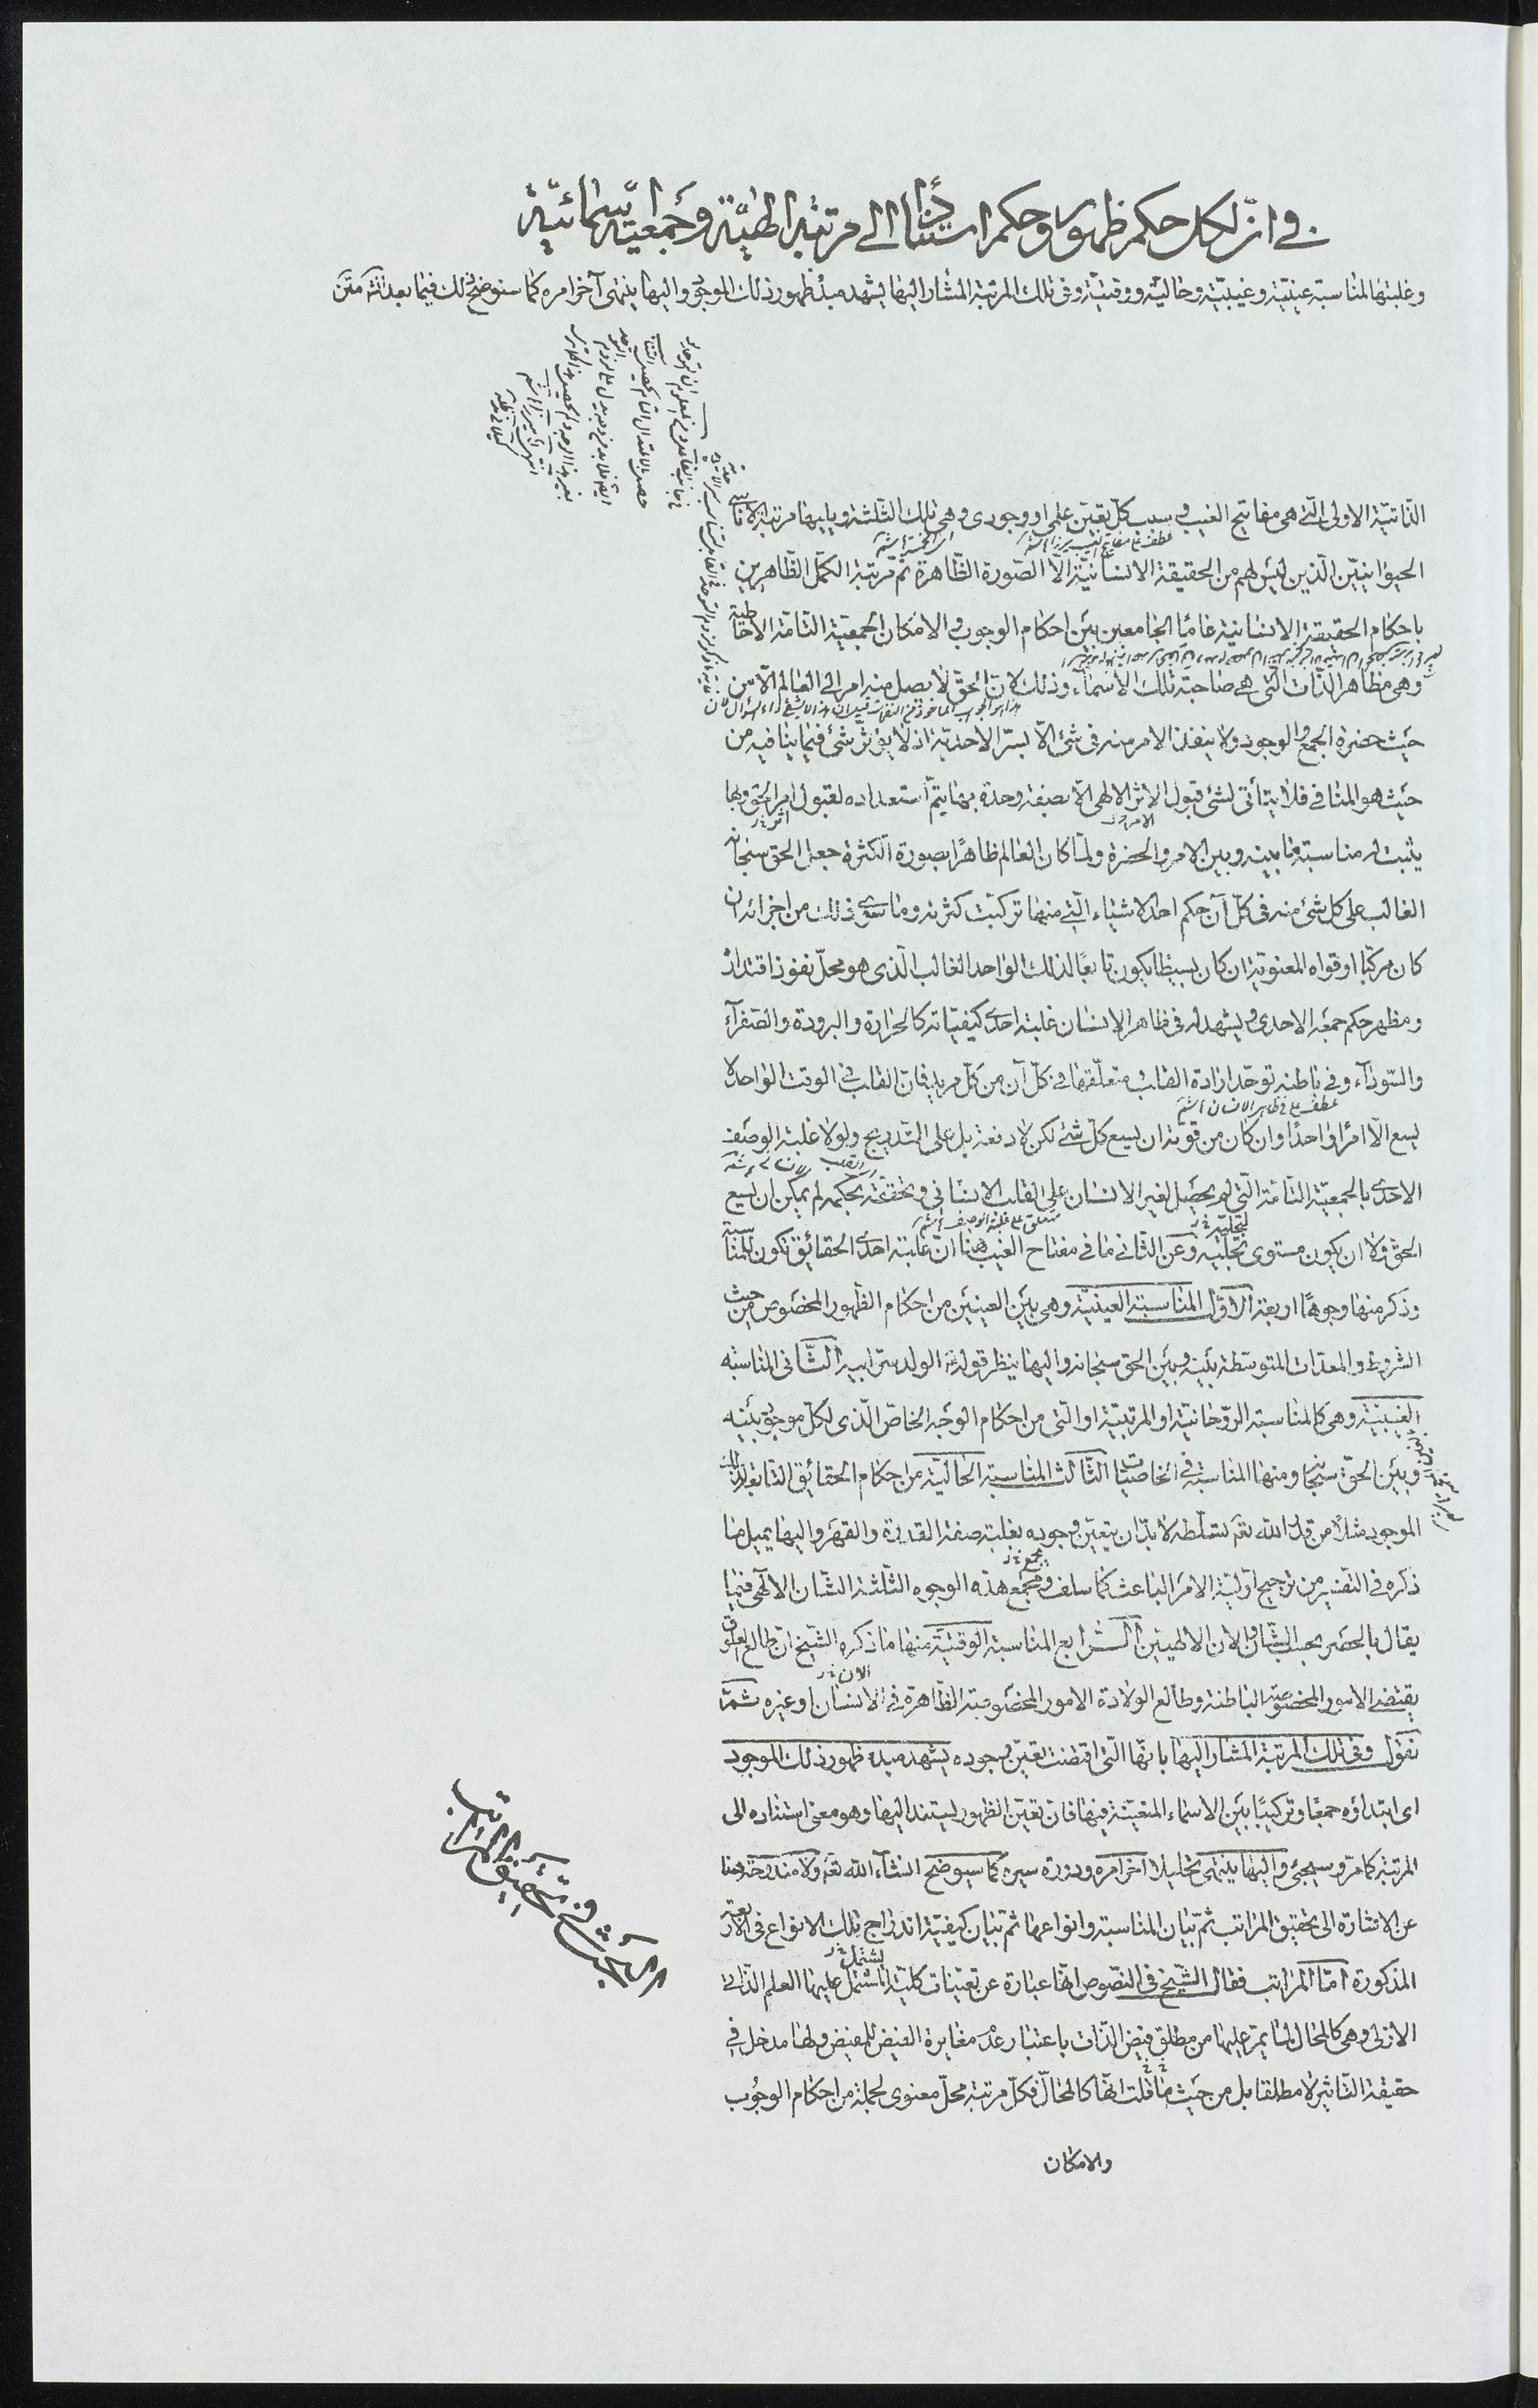 في انّ لكل حكم ظهور وحكم استنادًا الى مرتبة الهيّة وجمعيّة اسمائيّة
وغلبتها لمناسبة عينيّة وغيبيّة وحاليّة ووقتيّة وفى تلك المرتبة المشار اليها يشهد مبدء ظهور ذلك الموجود واليها ينتهى آخر امره كما سنوضح ذلك فيما بعد انشاء الله متن
الذاتيّة الاولى الّتى هى مفاتيح الغيب وسبب كلّ تعيّن علمى او وجودى وهى تلك الثلثة ويليها مرتبة الاناسى
الحيوانيّين الّذين ليس لهم من الحقيقة الانسانيّة الّا الصّورة الظّاهرة ثمّ مرتبة الكمّل الظّاهرين
باحكام الحقيقة الانسانية عامًّا الجامعين بين احكام الوجوب والامكان الجمعيّة التّامّة الاحاطية
وهى مظاهر الذّات الّتى هى صاحبة تلك الاسماء وذلك لانّ الحقّ لا يصل منه امر الى العالم الّا من
حيث حضرة الجمع والوجود ولا ينفذ الامر منه فى شئ الّا بسرّ الاحديّة اذ لا يؤثّر شئ فيما ينافيه من
حيث هو المنافى فلا يتأتى لشئ قبول الاثر الالهى الّا بصفة وحدة بها يتمّ استعداده لقبول امر الحق وبها
يثبت له مناسبة ما بينه وبين الامر والحضرة ولمّا كان العالم ظاهرًا بصورة الكثرة جعل الحق سبحانه
الغالب على كل شئ منه فى كلّ آن حكم احد الاشياء الّتى منها تركّبت كثرته وما سوى ذلك من اجزائه ان
كان مركّبا او قواه المعنويّة ان كان بسيطا يكون تابعًا لذلك الواحد الغالب الّذى هو محلّ نفوذ اقتداره
ومظهر حكم جمعه الاحدى ويشهد له فى ظاهر الانسان غلبة احدى كيفيّاته كالحرارة والبرودة والصّفراء
والسّوداء وفى باطنه توحّد ارادة القلب ومتعلّقها فى كلّ آن من كلّ مريد فانّ القلب فى الوقت الواحد لا
عطف على فى ظاهر الانسان
يسع الّا امرًا واحدًا وان كان من قوّته ان يسع كلّ شئ لكن لا دفعة بل على التّدريج ولولا غلبة الوصف
الاحدى بالجمعيّة التّامّة الّتى لم يحصل لغير الانسان على القلب الانسانى وتحقّقه بحكمه لم يمكن ان يسع
الحقّ ولا ان يكون مستوى تجلّيه وعن الثّانى ما فى مفتاح الغيب هنا انّ غلبة احدى الحقائق تكون للمناسبة
وذكر منها وجوهًا اربعة الاوّل المناسبة العينيّة وهى بين العينين من احكام الظّهور المخصوص من حيث
الشروط والمعدّات المتوسّطة بينه وبين الحق سبحانه واليها ينظر قوله الولد سرّ ابيه الثّانى المناسبة
الغيبيّة وهى كالمناسبة الرّوحانيّة او المرتبيّة او الّتى من احكام الوجه الخاصّ الّذى لكلّ موجود بينه
وبين الحقّ سبحانه ومنها المناسبة فى الخاصيّات الثّالث المناسبة الحاليّة من احكام الحقائق التّابعة لذلك
الموجود مثلًا من قدّر الله تعالى تسلّطه لا بدّ ان يتعيّن وجوده بغلبة صفة القدرة والقهر واليها يميل ما
ذكره فى التفسير من ترجيح اوّليّة الامر الباعث كما سلف ومجمع هذه الوجوه الثّلثة الشّان الالهى فيما
يقال بالحصر بحسب الشّان والآن الالهيّين الرّابع المناسبة الوقتيّة منها ما ذكره الشّيخ انّ طالع العلوق
يقتضى الامور المخصوصة الباطنة وطالع الولادة الامور المخصوصة الظّاهرة فى الانسان وغيره ثمّ
نقول وفى تلك المرتبة المشار اليها بانّها الّتى اقتضت تعيّن وجوده يشهد مبدء ظهور ذلك الموجود
اى ابتداؤه جمعًا وتركيبًا بين الاسماء المتعيّنة فيها فانّ تعيّن الظهور يستند اليها وهو معنى استناده الى
المرتبة كما مرّ وسيجئ واليها ينتهى تحليلا آخر امره ودورة سيره كما سيوضح انشاء الله تعالى ولا مندوحة هنا
عن الاشارة الى تحقيق المراتب ثمّ بيان المناسبة وانواعها ثمّ بيان كيفيّة اندراج تلك الانواع فى الاربعة
المذكورة امّا المراتب فقال الشّيخ فى النّصوص انّها عبارة عن تعيّنات كليّة اشتمل عليها العلم الذّاتى
الازلى وهى كالمحالّ لما يمرّ عليها من مطلق فيض الذّات باعتبار عدم مغايرة الفيض للمفيض ولها مدخل فى
حقيقة التّاثير لا مطلقا بل من حيث ما قلت انّها كالمحالّ فكلّ مرتبة محلّ معنوى لجملة من احكام الوجوب
والامكان
المبحث فى تحقيق المراتب